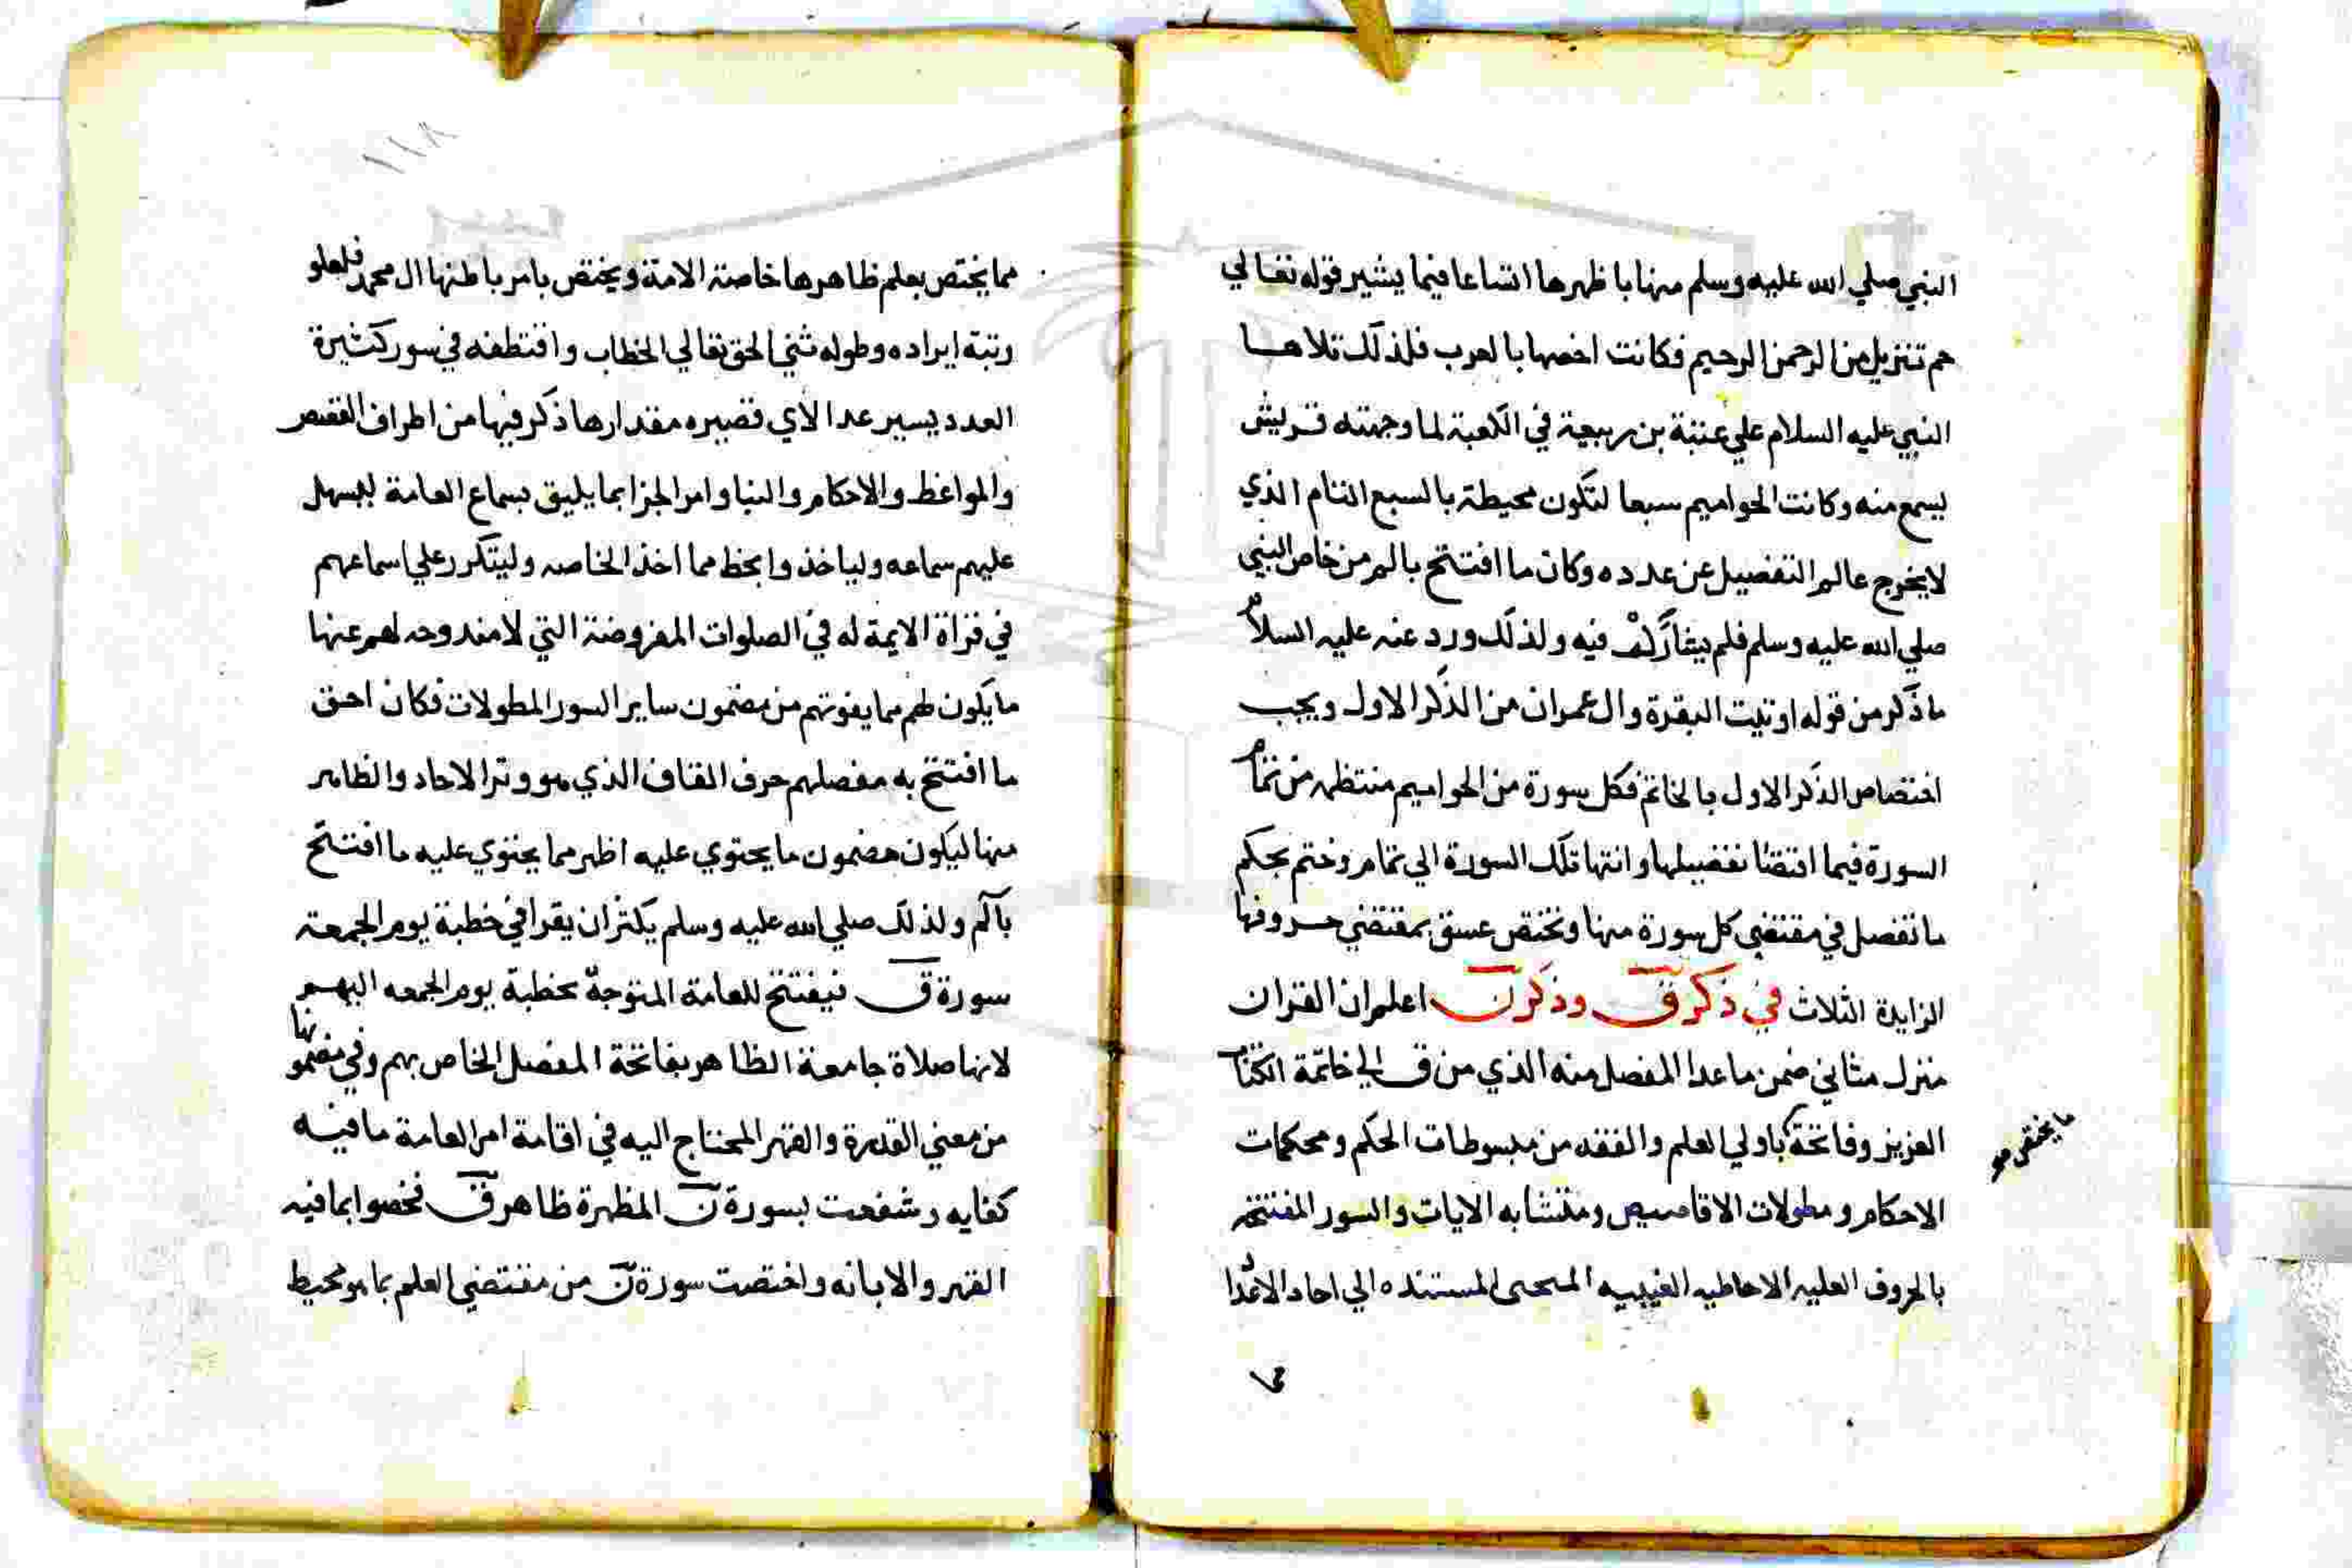 النبي صلي الله عليه وسلم منها باظهرها اتساعا فيما يشير قوله تعالي
حم تنزيل من الرحمن الرحيم فكانت اخصها بالعرب فلذلك تلاها
النبي عليه السلام علي عتبة بن ربيعة في الكعبة لما وجهته قريش
ليسمع منه وكانت الحواميم سبعا لتكون محيطة بالسبع التام الذي
لا يخرج عالم التفصيل عن عدده وكان ما افتتح بالم من خاص النبي
صلي الله عليه وسلم فلم يشارك فيه ولذلك ورد عنه عليه السلام
ما ذكر من قوله اوتيت البقرة وال عمران من الذكر الاول ويجب
اختصاص الذكر الاول بالخاتم فكل سورة من الحواميم منتظمه من تمام
السورة فيما اقتضا تفصيلها وانتها تلك السورة الي تمام وختم بحكم
ما تفصل في مقتضي كل سورة منها وتختص عسق بمقتضي حروفها
الزايدة الثلاث في ذكر ق وذكر ن اعلم ان القران
منزل مثاني ضمن ما عدا المفصل منه الذي من ق الي خاتمة الكتاب
العزيز وفاتحة باولي العلم والفقه من مبسوطات الحكم ومحكمات
ما يختص
الاحكام ومطولات الاقاصيص ومتشابه الايات والسور المفتتحه
بالحروف العليه الاحاطيه الغيبيه المستنده الي احاد الاعداد
١١٨
مما يختص بعلم ظاهرها خاصة الامة ويختص بامر باطنها ال محمد فلعلو
رتبة ايراده وطوله ثني الحق تعالي الخطاب واقتطفه في سور كثيرة
العدد يسير عدا الاي قصيره مقدارها ذكر فيها من اطراف القصص
والمواعظ والاحكام والثنا وامر الجزا بما يليق بسماع العامة ليسهل
عليهم سماعه ولياخذوا بحظ مما اخذ الخاصه وليتكرر علي اسماعهم
في قراة الايمة له في الصلوات المفروضة التي لا مندوحه لهم عنها
ما يكون لهم مما يفوتهم من مضمون ساير السور المطولات فكان احق
ما افتتح به مفصلهم حرف القاف الذي هو وتر الاحاد والظاهر
منها ليكون مضمون ما يحتوي عليه اظهر مما يحتوي عليه ما افتتح
بالم ولذلك صلي الله عليه وسلم يكثر ان يقرا في خطبة يوم الجمعة
سورة ق فيفتتح للعامة المتوجة بخطبة يوم الجمعه اليهم
لانها صلاة جامعة الظاهر بفاتحة المفصل الخاص بهم وفي مضمونها
من معني القدرة والقهر المحتاج اليه في اقامة امر العامة ما فيه
كفايه وشفعت بسورة ن المظهرة ظاهر ق فخصوا بما فيه
القهر والابانه واختصت سورة ن من مقتضي العلم بما هو محيط